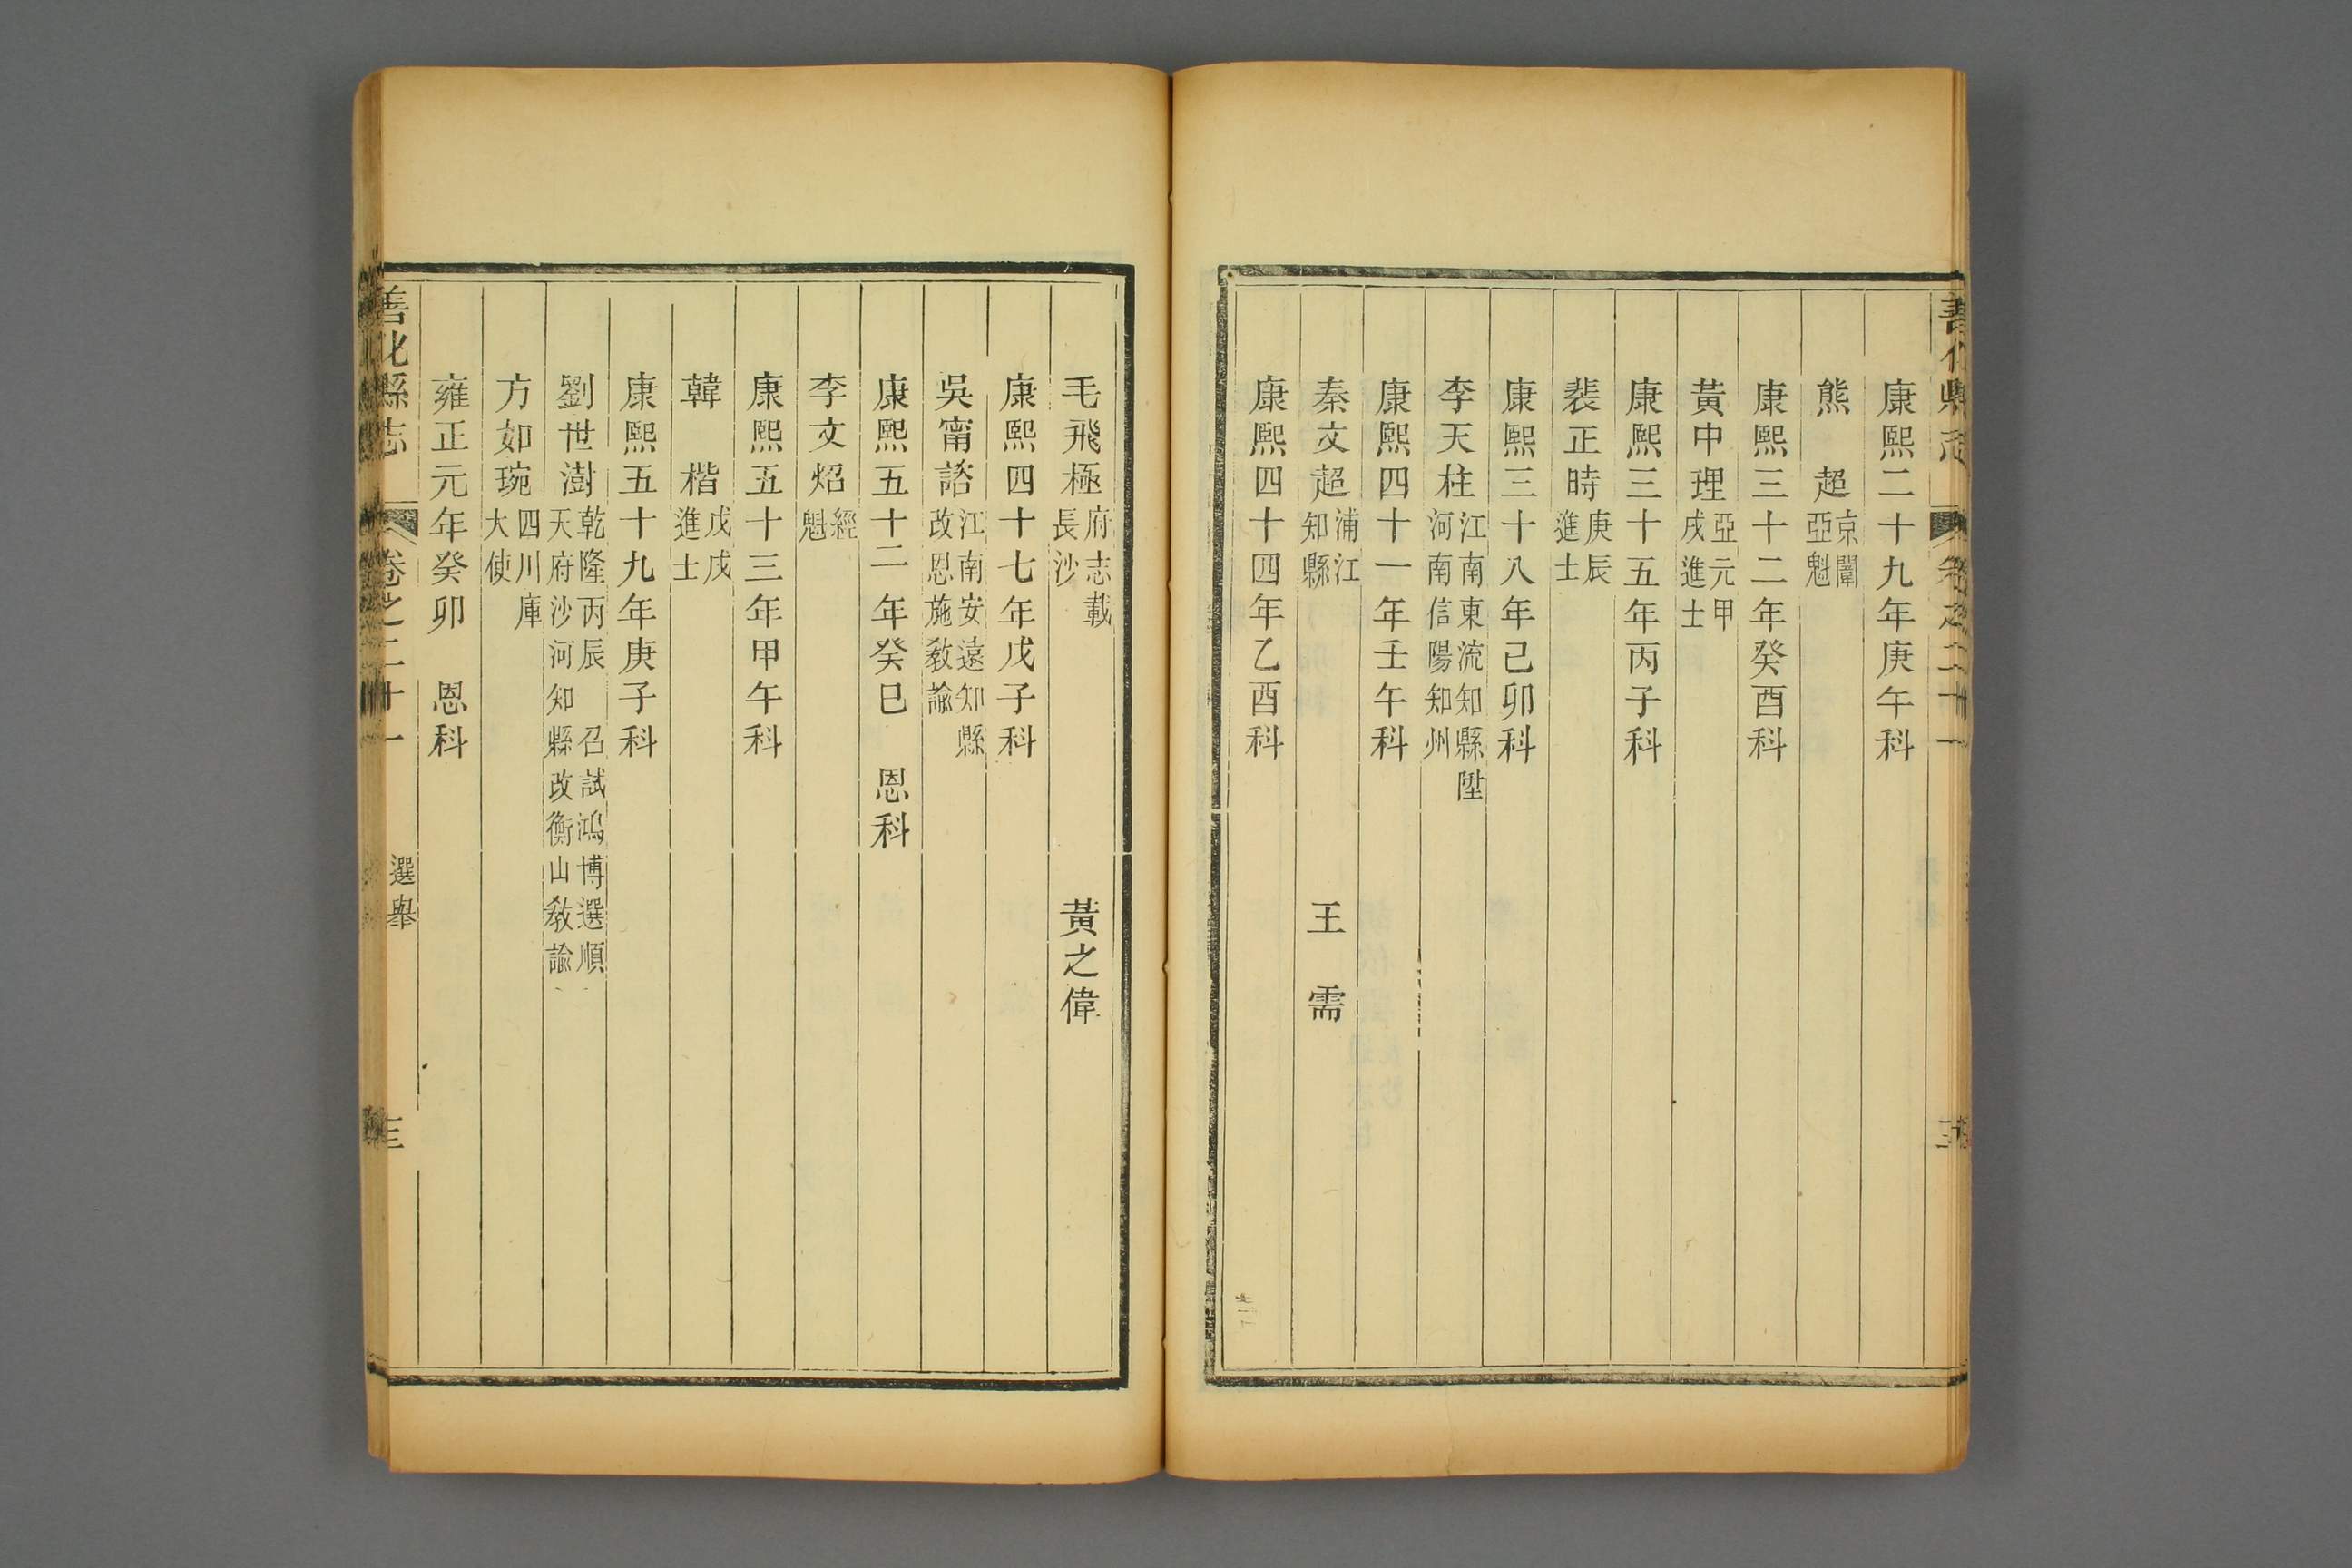 康熙二十九年庚午科
熊　超京闈亞魁
康熙三十二年癸酉科
黃中理亞元甲戌進士
康熙三十五年丙子科
裴正時庚辰進士
康熙三十八年己卯科
李天柱江南東流知縣陞河南信陽知州
康熙四十一年壬午科
秦文超浦江知縣　王　需
康熙四十四年乙酉科
毛飛極府志載長沙　黃之偉
康熙四十七年戊子科
吳甯諮江南安遠知縣改恩施敎諭
康熙五十二年癸巳　恩科
李文炤經魁
康熙五十三年甲午科
韓　楷戊戌進士
康熙五十九年庚子科
劉世澍乾隆丙辰　召試鴻博選順天府沙河知縣改衡山敎諭
方如琬四川庫大使
雍正元年癸卯　恩科
善化縣志　卷之二十一　選舉